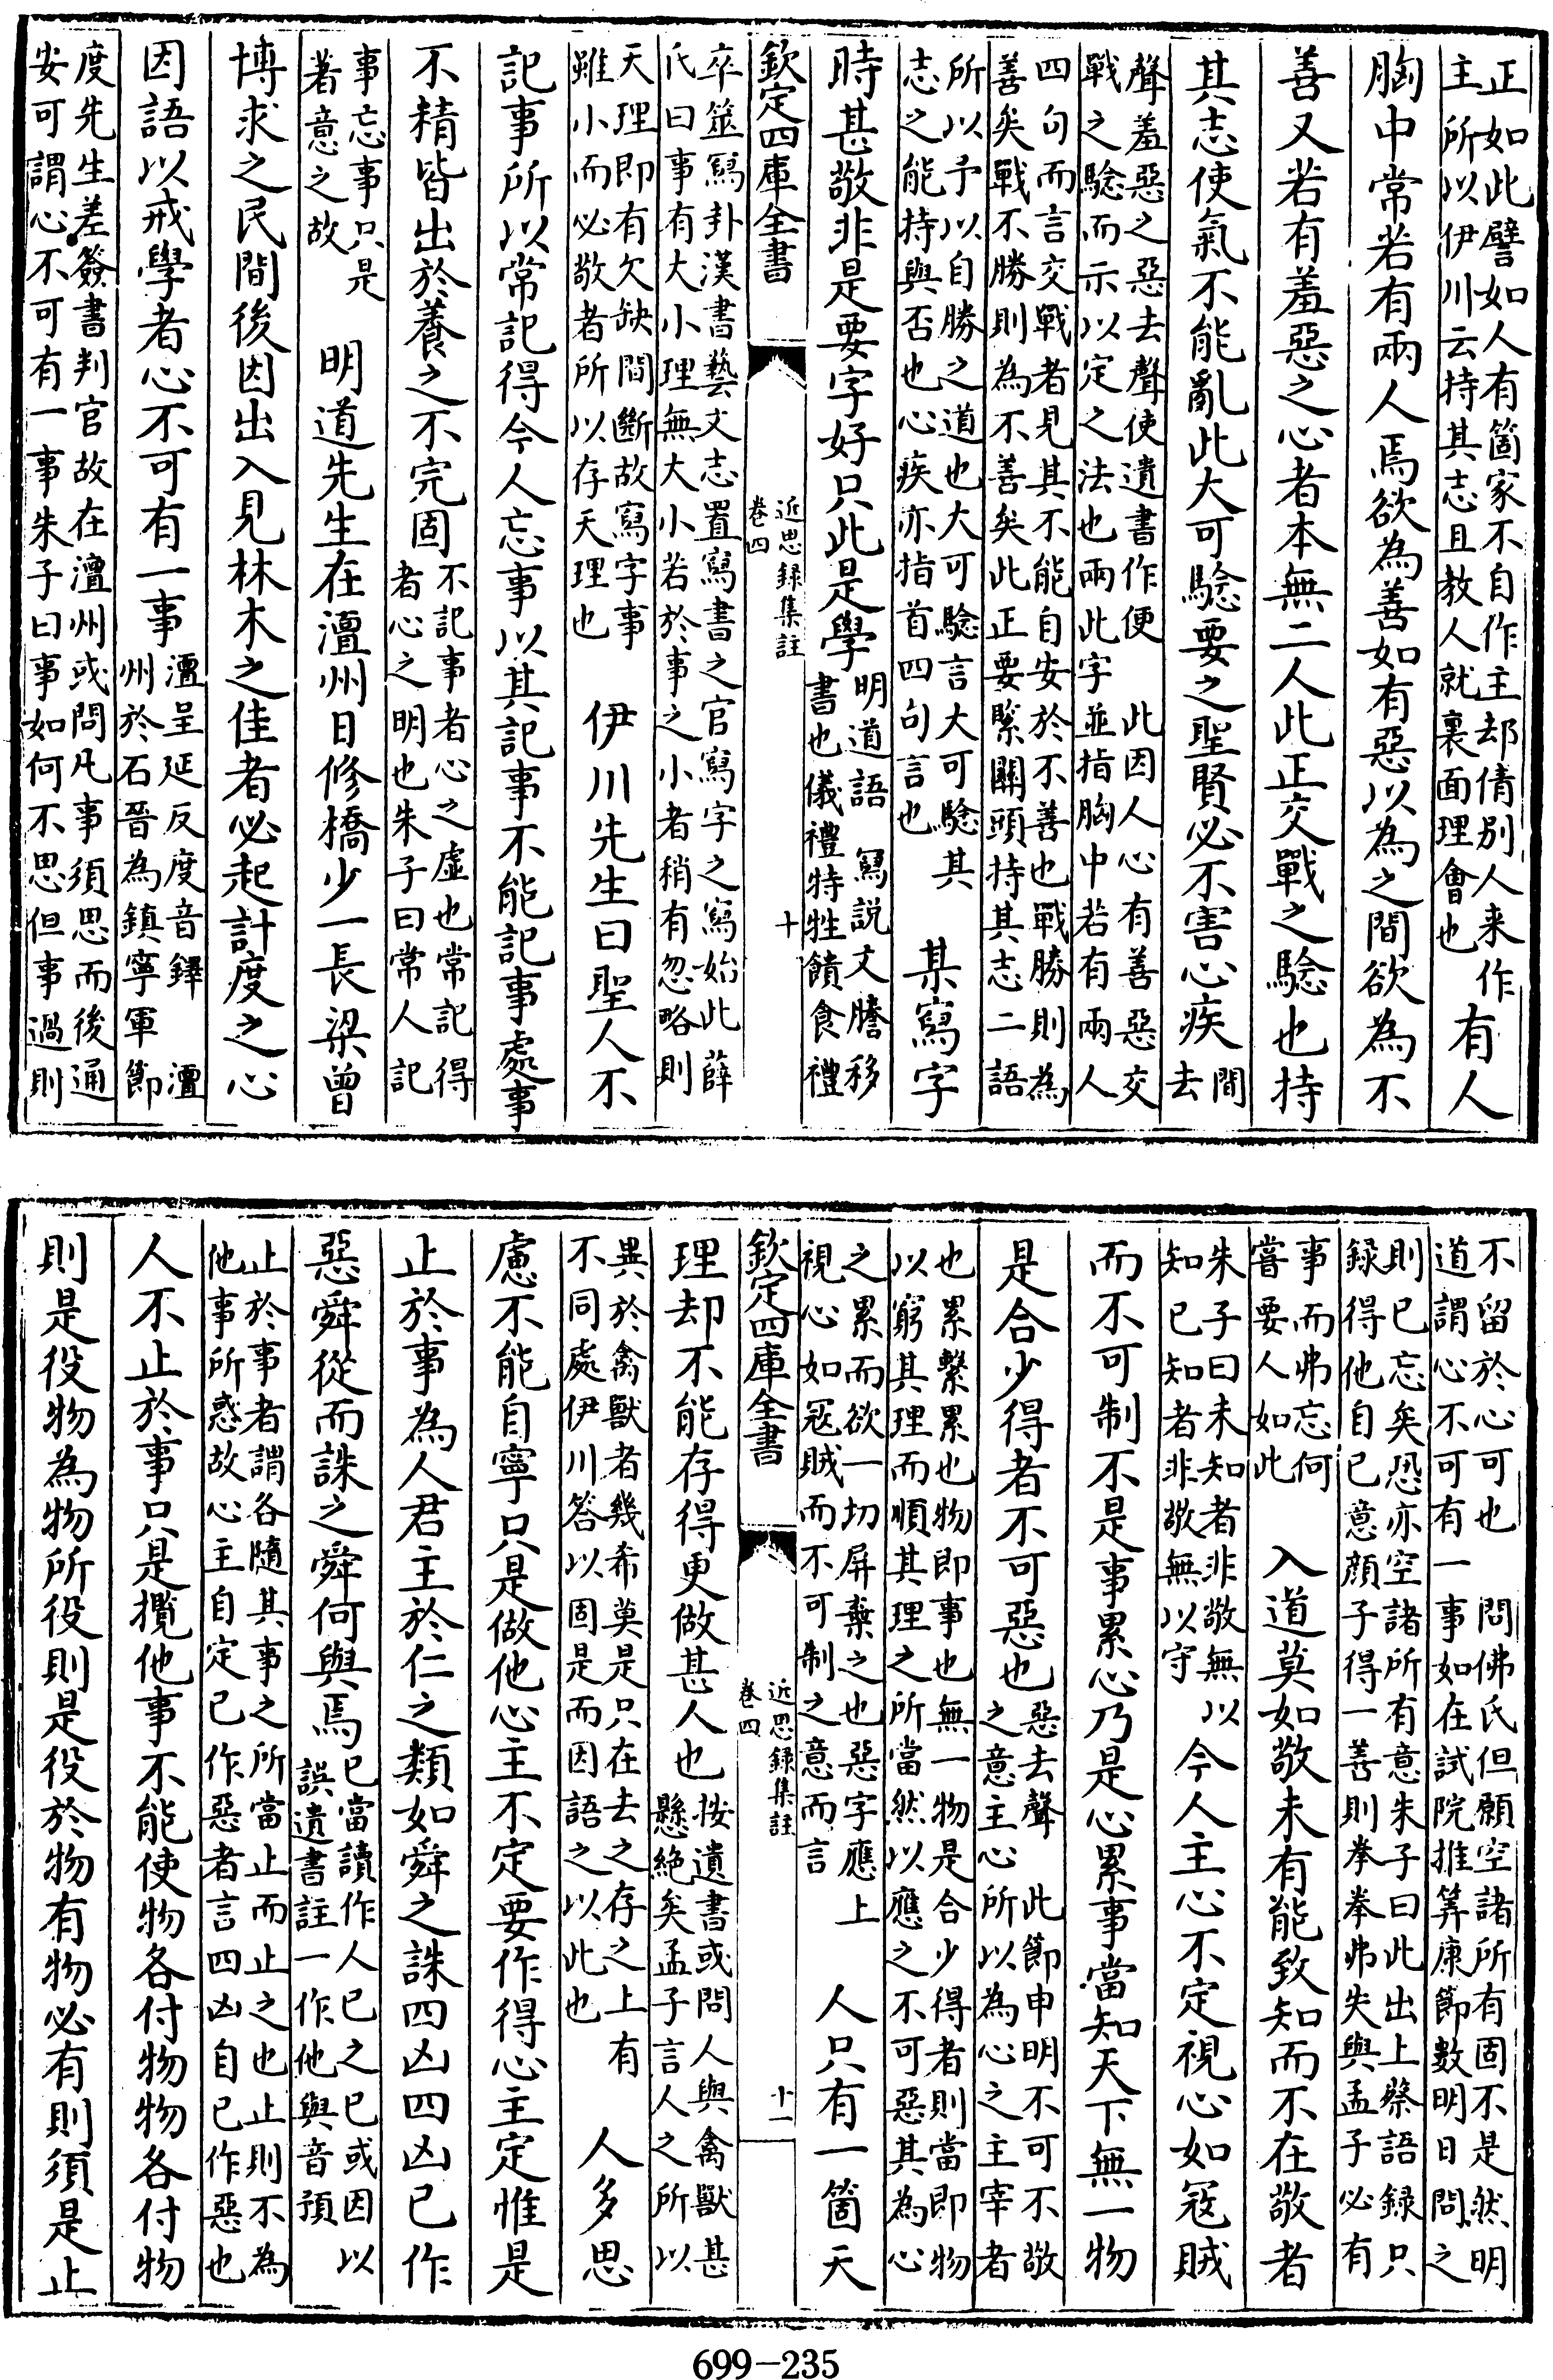 正如此譬如人有箇家不自作主却倩別人来作
主所以伊川云持其志且教人就裏面理會也
有人
胸中常若有兩人焉欲為善如有惡以為之間欲為不
善又若有羞惡之心者本無二人此正交戰之驗也持
其志使氣不能亂此大可驗要之聖賢必不害心疾
間
去
聲羞惡之惡去聲使遺書作便
此因人心有善惡交
戰之驗而示以定之法也兩此字並指胸中若有兩人
四句而言交戰者見其不能自安於不善也戰勝則為
善矣戰不勝則為不善矣此正要緊關頭持其志二語
所以予以自勝之道也大可驗言大可驗其
志之能持與否也心疾亦指首四句言也
某寫字
時甚敬非是要字好只此是學
明道語
寫説文謄移
書也儀禮特牲饋食禮
欽定四庫全書
近思録集註
卷四
十
卒筮寫卦漢書藝文志置寫書之官寫字之寫始此薛
氏曰事有大小理無大小若於事之小者稍有忽略則
天理即有欠缺間斷故寫字事
雖小而必敬者所以存天理也
伊川先生曰聖人不
記事所以常記得今人忘事以其記事不能記事處事
不精皆出於養之不完固
不記事者心之虛也常記得
者心之明也朱子曰常人記
事忘事只是
著意之故
明道先生在澶州日修橋少一長梁曾
博求之民間後因出入見林木之佳者必起計度之心
因語以戒學者心不可有一事
澶呈延反度音鐸
澶
州於石晉為鎮寧軍節
度先生差簽書判官故在澶州或問凡事須思而後通
安可謂心不可有一事朱子曰事如何不思但事過則
不留於心可也
問佛氏但願空諸所有固不是然明
道謂心不可有一事如在試院推算康節數明日問之
則已忘矣恐亦空諸所有意朱子曰此出上蔡語録只
録得他自已意顔子得一善則拳拳弗失與孟子必有
事而弗忘何
嘗要人如此
入道莫如敬未有能致知而不在敬者
朱子曰未知者非敬無以
知已知者非敬無以守
今人主心不定視心如寇賊
而不可制不是事累心乃是心累事當知天下無一物
是合少得者不可惡也
惡去聲
此節申明不可不敬
之意主心所以為心之主宰者
也累繫累也物即事也無一物是合少得者則當即物
以窮其理而順其理之所當然以應之不可惡其為心
之累而欲一切屏棄之也惡字應上
視心如寇賊而不可制之意而言
人只有一箇天
欽定四庫全書
近思録集註
卷四
十一
理却不能存得更做甚人也
按遺書或問人與禽獸甚
懸絶矣孟子言人之所以
異於禽獸者幾希莫是只在去之存之上有
不同處伊川答以固是而因語之以此也
人多思
慮不能自寧只是做他心主不定要作得心主定惟是
止於事為人君主於仁之類如舜之誅四凶四凶已作
惡舜從而誅之舜何與焉
已當讀作人已之已或因以
誤遺書註一作他與音預
止於事者謂各隨其事之所當止而止之也止則不為
他事所惑故心主自定已作惡者言四凶自已作惡也
人不止於事只是攬他事不能使物各付物物各付物
則是役物為物所役則是役於物有物必有則須是止
699-235